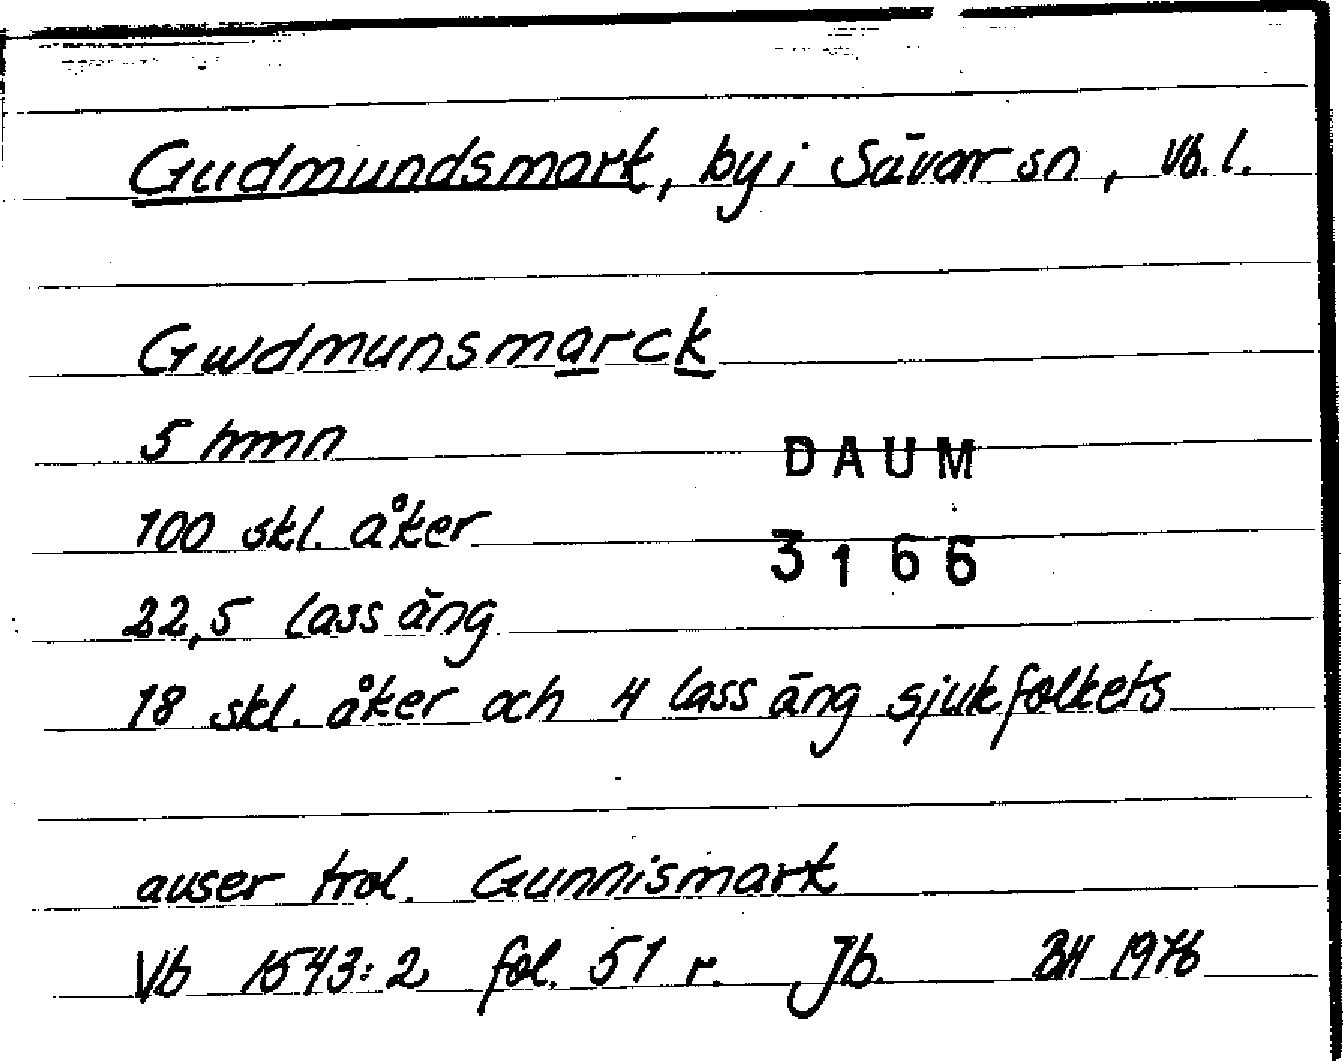 Gudmundsmark, by i Sävar sn, Vb.l.
Gwdmunsmarck
5 hmn
DAUM
100 skl. åker
3166
22,5 lass äng
18 skl. åker och 4 lass äng sjukfolkets
avser trol. Gunnismark
Vb 1543:2 fol. 51 r. Jb. BH 1976